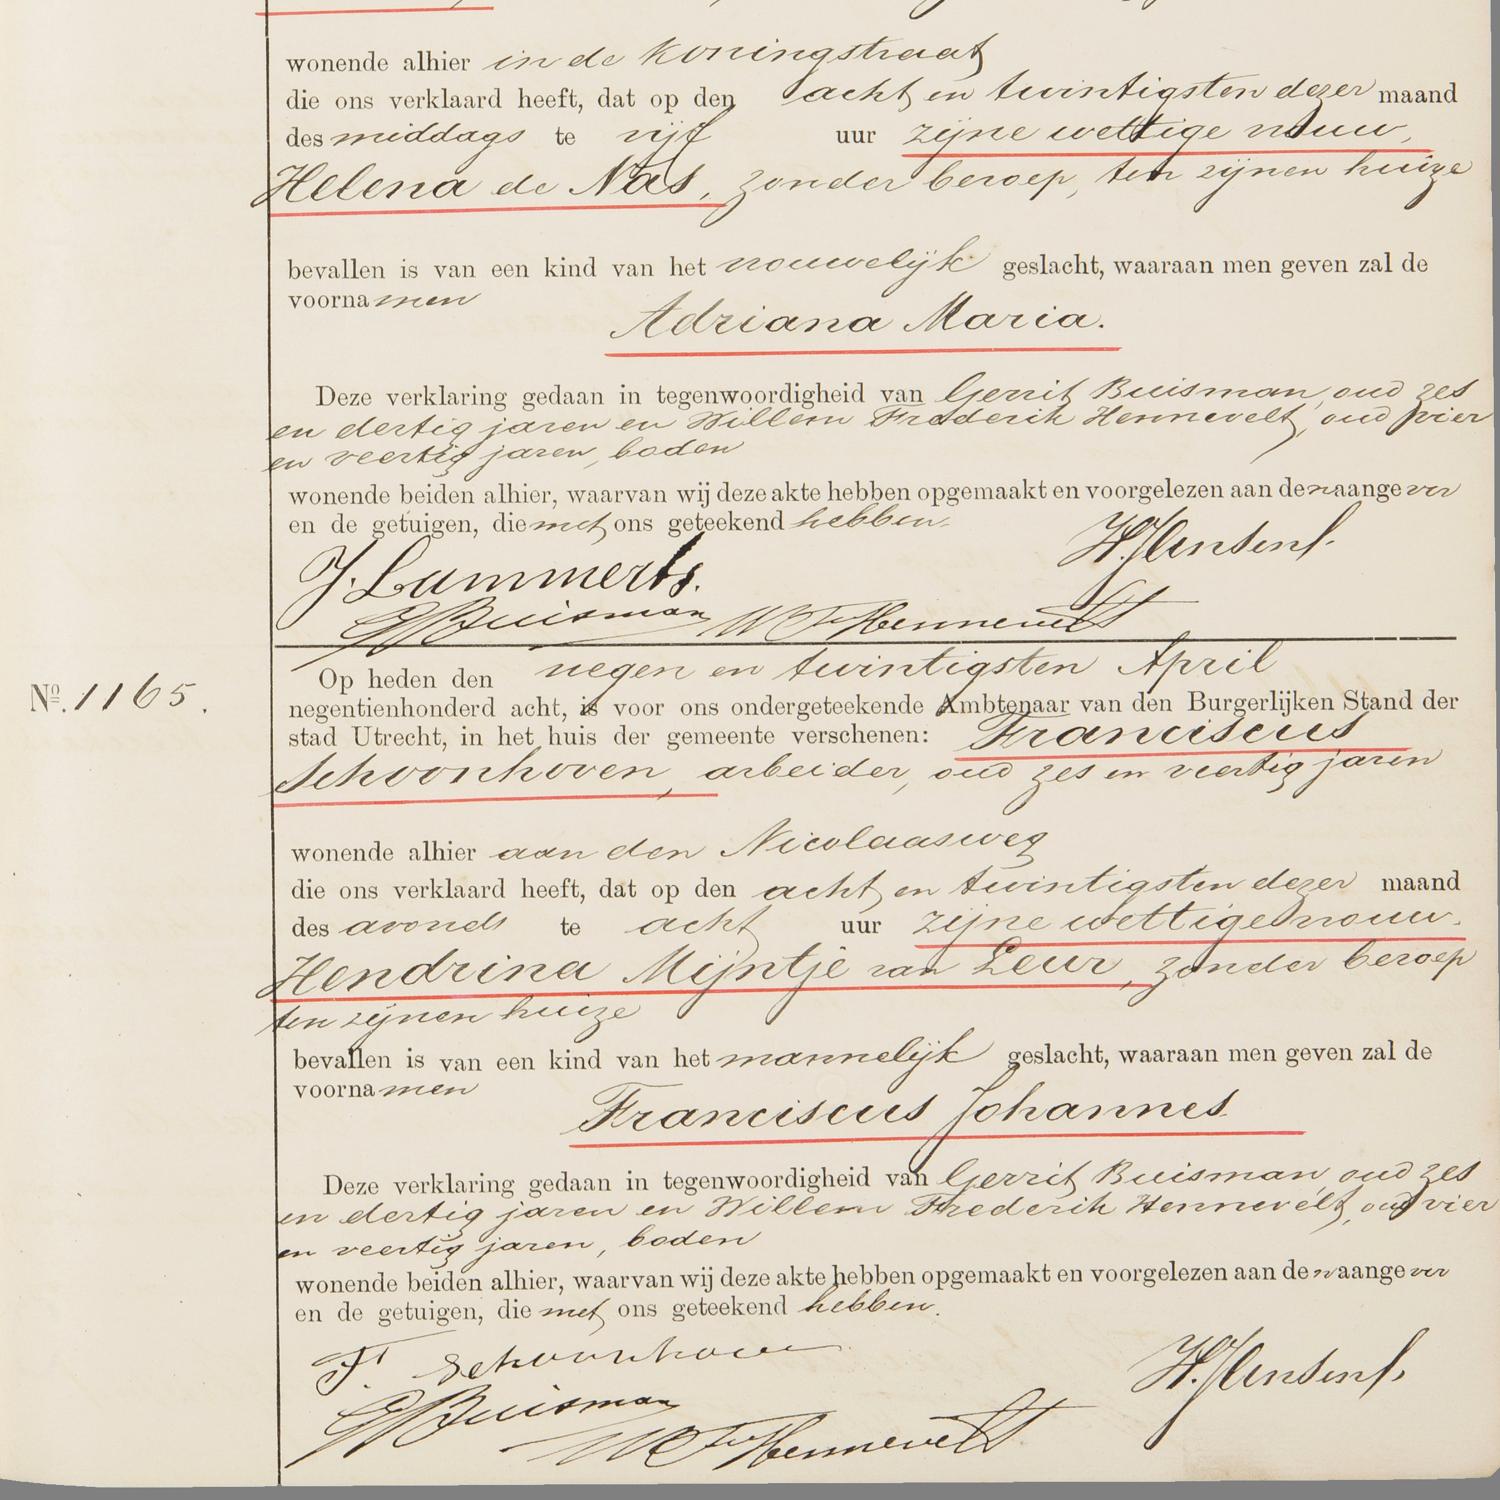 wonende alhier in de Koningstraat
die ons verklaard heeft, dat op den acht en twintigsten dezer maand
des middags te vijf uur zijne wettige vrouw,
Helena de Nas, zonder beroep, ten zijnen huize
bevallen is van een kind van het vrouwelijk geslacht, waaraan men geven zal de
voornamen
Adriana Maria.
Deze verklaring gedaan in tegenwoordigheid van Gerrit Buisman, oud zes
en dertig jaren en Willem Frederik Hennevelt, oud vier
en veertig jaren, boden
wonende beiden alhier, waarvan wij deze akte hebben opgemaakt en voorgelezen aan den aangever
en de getuigen, die met ons geteekend hebben.
J. Lammerts. H. Jansen
G Buisman W F Hennevelt
Op heden den negen en twintigsten April
Nº. 1165.
negentienhonderd acht, is voor ons ondergeteekende Ambtenaar van den Burgerlijken Stand der
stad Utrecht, in het huis der gemeente verschenen: Franciscus
Schoonhoven, arbeider, oud zes en veertig jaren
wonende alhier aan den Nicolaasweg
die ons verklaard heeft, dat op den acht en twintigsten dezer maand
des avonds te acht uur zijne wettige vrouw.
Hendrina Mijntje van Leur, zonder beroep
ten zijnen huize
bevallen is van een kind van het mannelijk geslacht, waaraan men geven zal de
voornamen
Franciscus Johannes.
Deze verklaring gedaan in tegenwoordigheid van Gerrit Buisman, oud zes
en dertig jaren en Willem Frederik Hennevelt, oud vier
en veertig jaren, boden
wonende beiden alhier, waarvan wij deze akte hebben opgemaakt en voorgelezen aan den aangever
en de getuigen, die met ons geteekend hebben.
F. Schoonhoven H. Jansen
G Buisman
W F Hennevelt